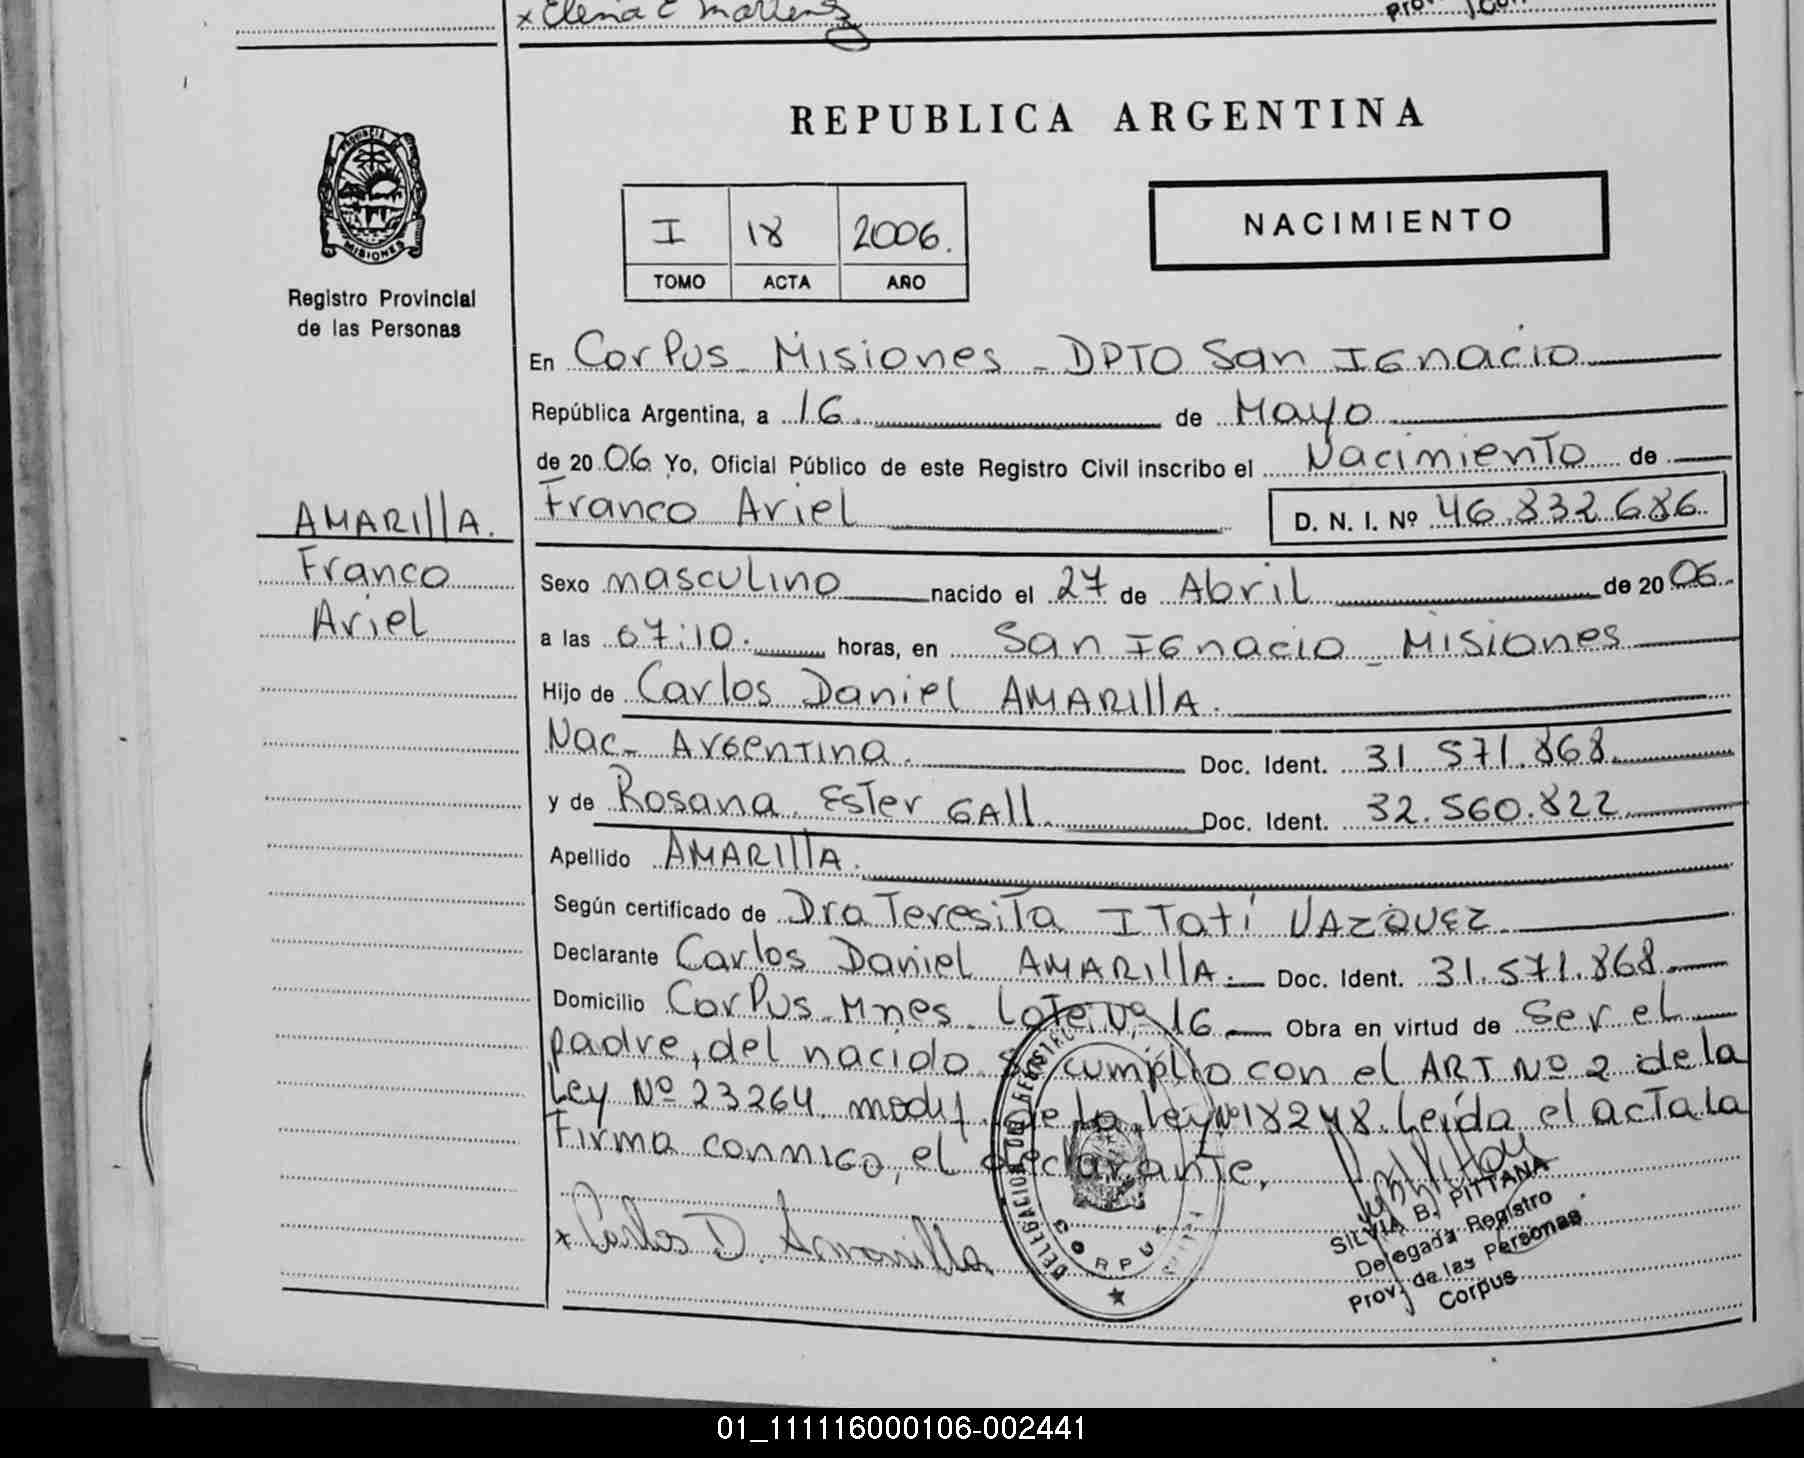 x Elena E Martenz
REPUBLICA ARGENTINA
PROVINCIA DE
MISIONES
Registro Provincial
de las Personas
I 18 2006.
TOMO ACTA AÑO
NACIMIENTO
En Corpus - Misiones - DPTO San Ignacio
República Argentina, a 16 de Mayo
de 20 06 Yo, Oficial Público de este Registro Civil inscribo el Nacimiento de
Franco Ariel D. N. I. Nº 46.832.686
AMARIllA.
Franco
Ariel
Sexo masculino nacido el 27 de Abril de 20 06
a las 07:10. horas, en San Ignacio - Misiones
Hijo de Carlos Daniel AMARIllA.
Nac- Argentina. Doc. Ident. 31.571.868
y de Rosana Ester GAll. Doc. Ident. 32.560.822
Apellido AMARIllA.
Según certificado de Dra Teresita Itatí VAZQUEZ
Declarante Carlos Daniel AMARIllA. Doc. Ident. 31.571.868
Domicilio Corpus - Mnes - Lote Nº 16 Obra en virtud de Ser el
padre, del nacido. Se cumplio con el ART Nº 2 de la
Ley Nº 23264 modif. de la ley Nº 18248. Leída el acta la
Firma conmigo, el declarante.
x Carlos D. Amarilla
DELEGACION DEL REGISTRO
CORPUS
SILVIA B. PITTANA
Delegada Registro
Prov. de las Personas
Corpus
01_111116000106-002441